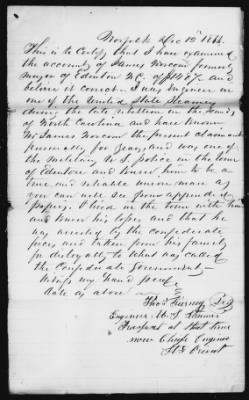 Norfolk Dec 10th 1866.
This is to Certify that I have examined
the account of James Norcom former
mayor of Edenton N.C. of $1407. and
believe it correct. I was Engineer in
one of the United State Steamers
during the late rebellion in the Sounds
of North Carolina and have known
Mr James Norcom the present claimant
personally for years, and was one of
the military U.S. police in the town
of Edenton and knew him to be a
true and reliable union man, as
you can will see from appended
papers. I lived in the town with him
and knew his loyes and that he
was arrested by the confederate
forces and taken from his family
for disloyalty to what was called
the Confederate Government.
Witness my hand
date as above
Engineer U.S. Steamer
at that time
now Chief Engineer